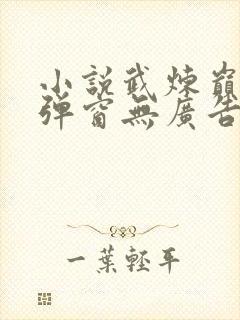 小說武煉巔
彈窗無廣告
一葉輕平